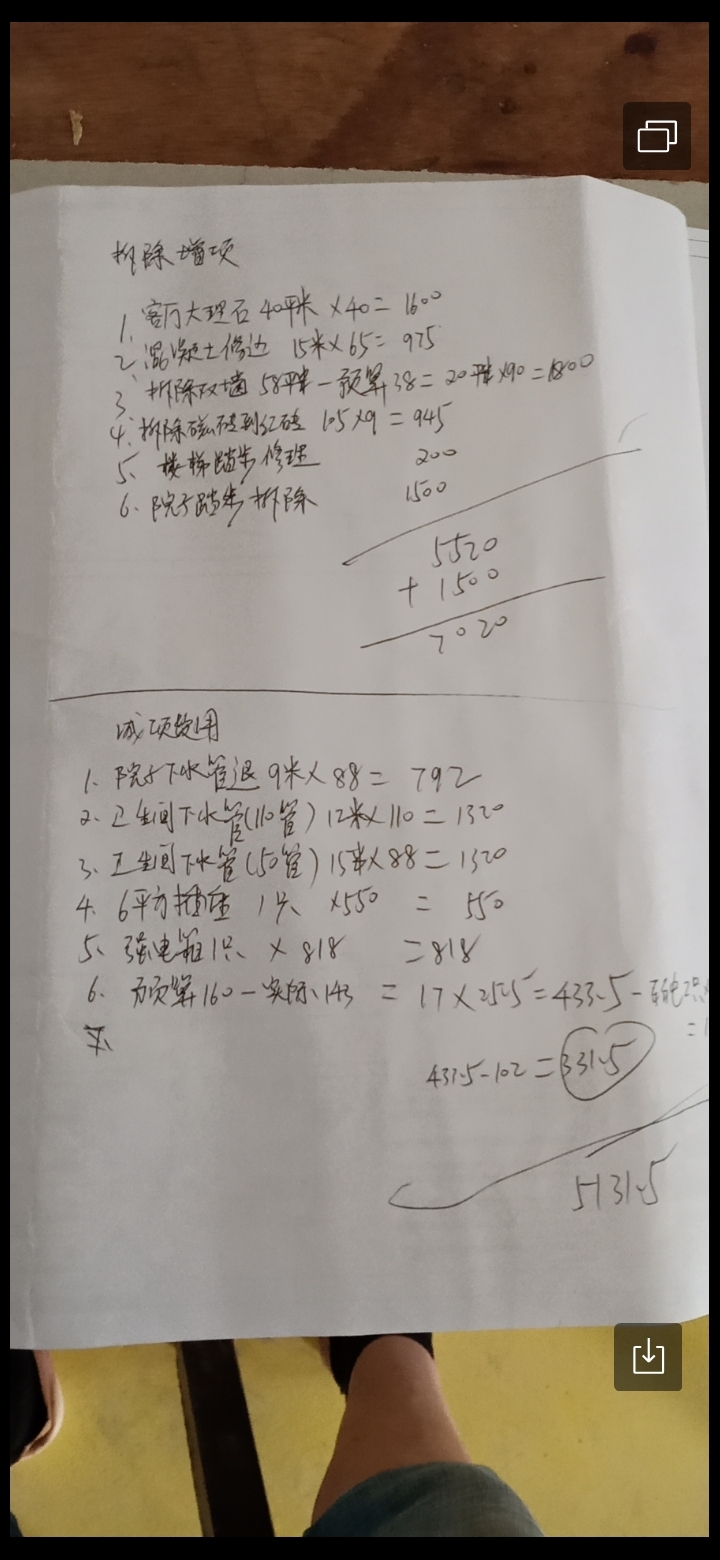 拆除增项
1、客厅大理石 40平米 ×40= 1600
2、混凝土修边 15米×65= 975
3、拆除双墙 58平米-预算38=20平米×90=1800
4、拆除磁砖到红砖 105×9=945
5、楼梯踏步修理 200
6、院子踏步拆除 1500
5520
+1500
7020
减项费用
1、院子下水管退 9米×88= 792
2、卫生间下水管(110管)12米×110=1320
3、卫生间下水管(50管)15米×88=1320
4、6平方插座 1只 ×550 = 550
5、强电箱1只 × 818 =818
6、预算160-实际143 = 17×25.5=433.5-弱电2只
=1
433.5-102=331.5
5131.5